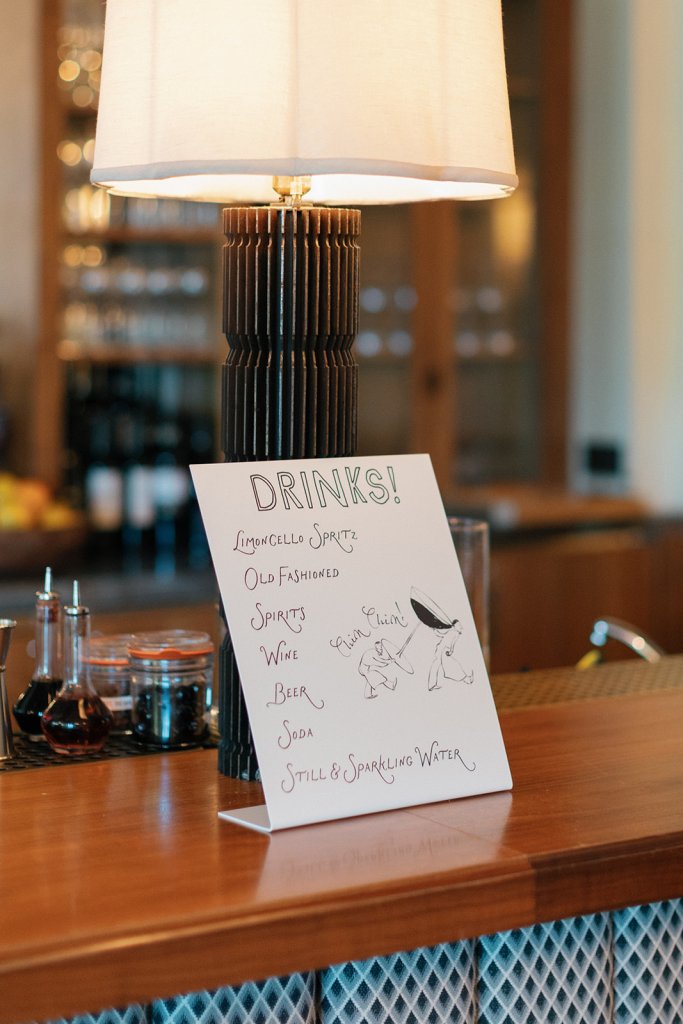 DRINKS!
LIMONCELLO SPRITZ
OLD FASHIONED
SPIRITS
WINE
BEER
SODA
STILL & SPARKLING WATER
Chin Chin!